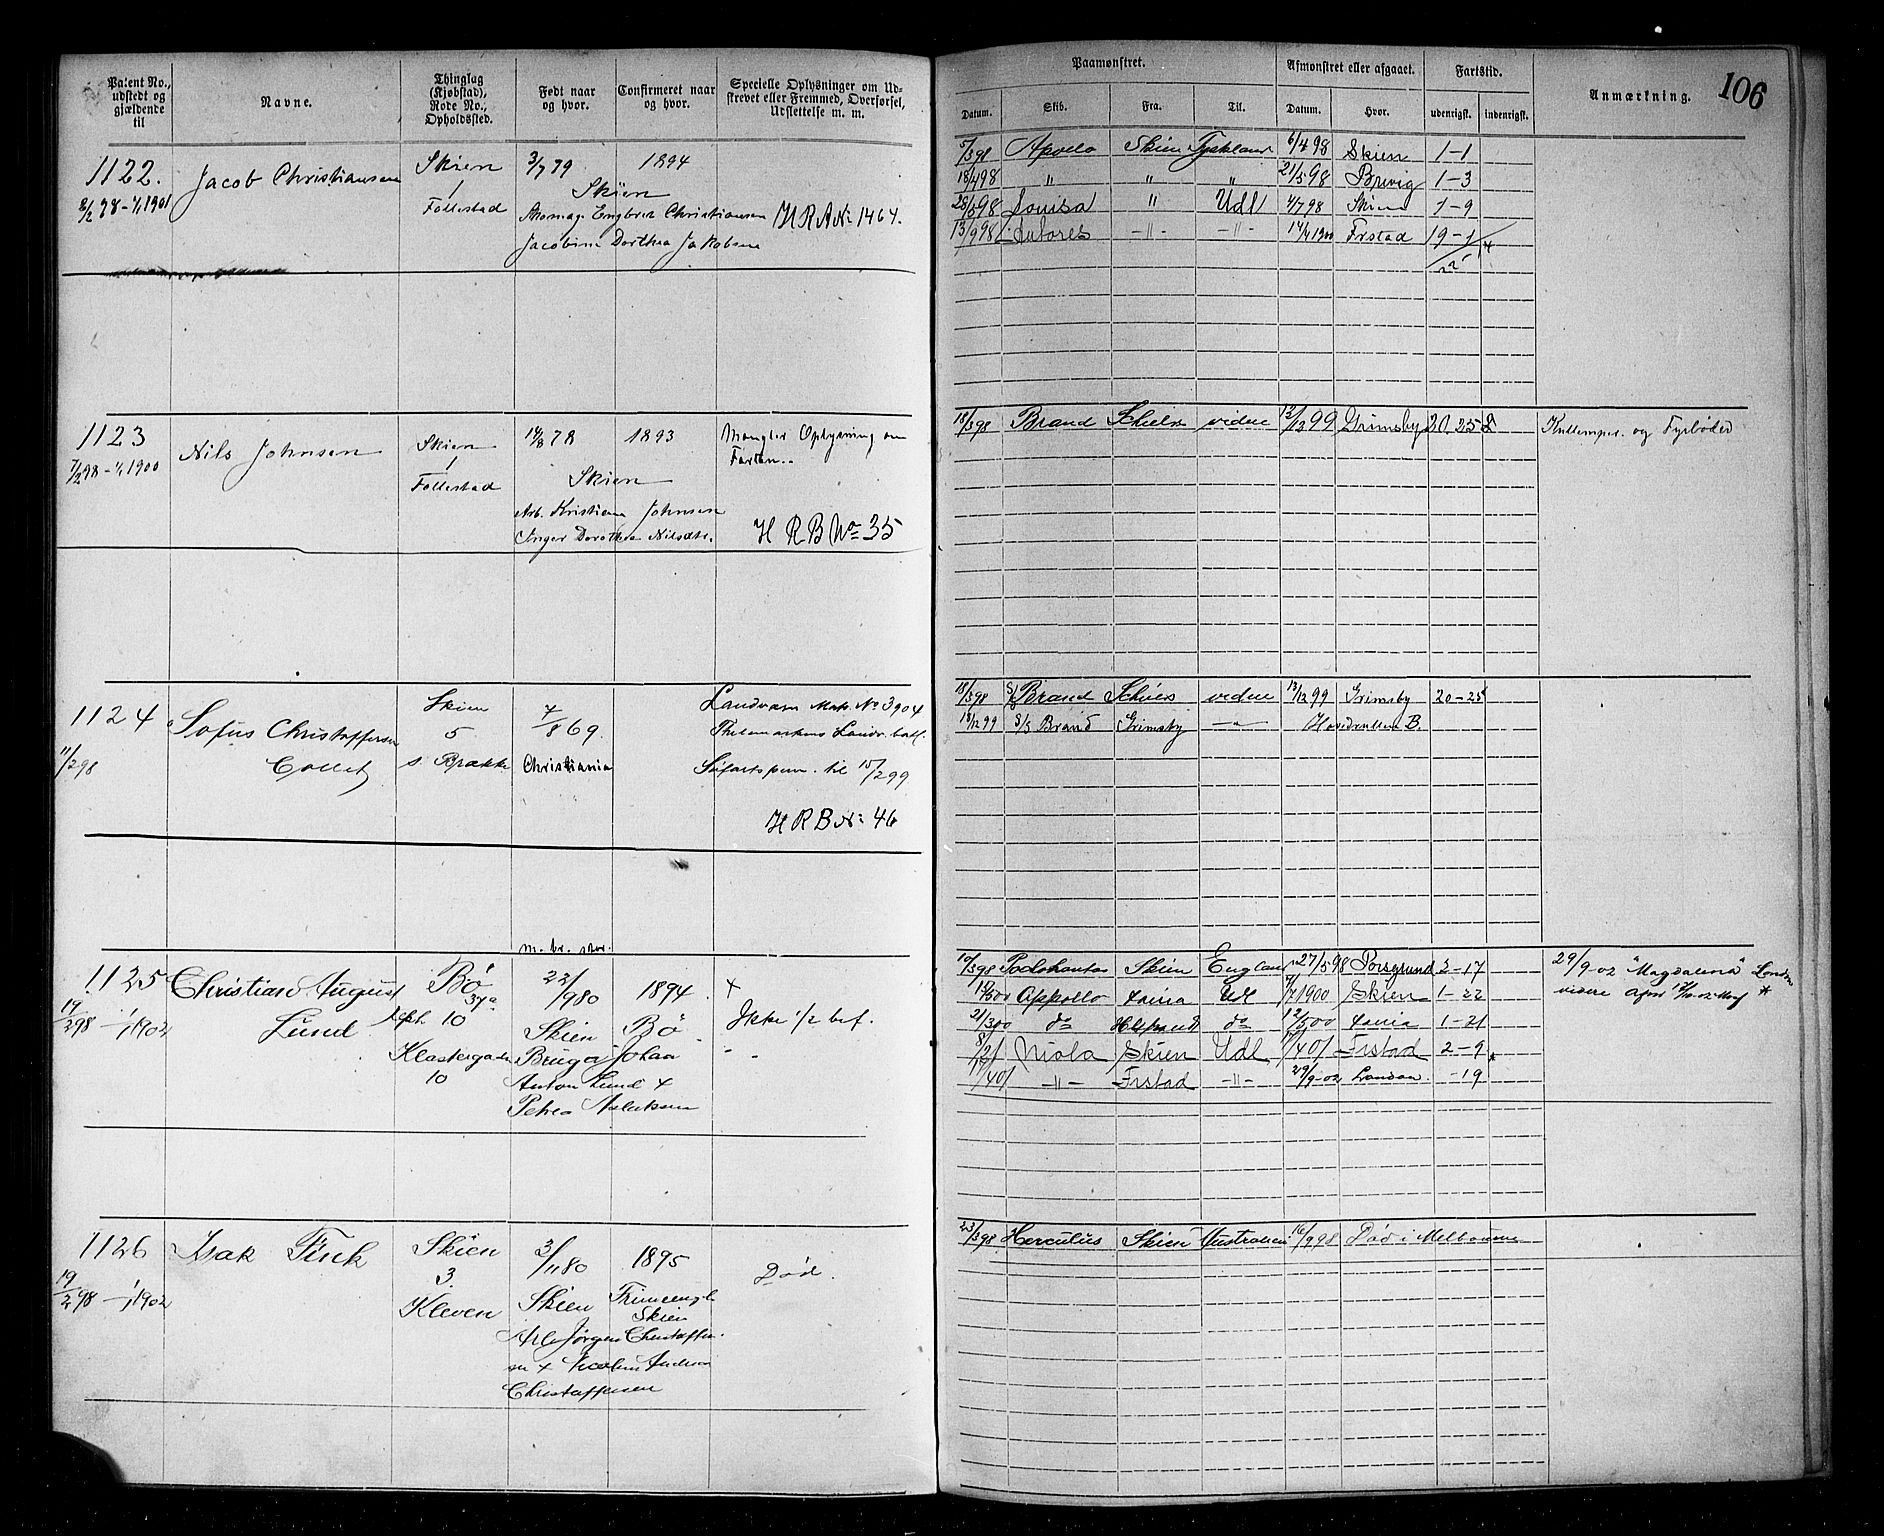 Patent No., udstedt og gjældende til
Navne.
Thinglag (Kjøbstad), Rode No., Opholdssted.
Født naar og hvor.
Confirmeret naar og hvor.
Specielle Oplysninger om Udskrevet eller Fremmed, Overførsel, Udslettelse m. m.
Paamønstret.
Afmønstret eller afgaaet.
Fartstid.
Anmærkning.
106
Datum.
Skib.
Fra.
Til.
Datum.
Hvor.
udenrigsk.
indenrigsk.
1122.
8/2 98 - 1/1 1901
Jacob Christiansen
Skien
1
Follestad
3/7 79
1894
Skien
Engbret Christiansen
Jacobine Dorthea Jakobsen
H R A No 1464.
5/3 98 Apollo Skien Tyskland 6/4 98 Skien 1-1
18/4 98 " " " 21/5 98 Brevig 1-3
28/5 98 Louisa " Udl 4/7 98 Skien 1-9
13/9 98 -"- -"- 14/4 1900 Frstad 19-1
1123
7/2 98 - 1/1 1900
Nils Johnsen
Skien
1
Follestad
14/8 78
1893
Skien
Arb. Kristian Johnsen
Inger Dorothea Nilsdtr.
Mangler Oplysning om
Farten..
H R B No 35
18/3 98 Brand videre 13/12 99 Grimsby 20.25
Kullemper. og Fyrbøder
1124
11/2 98
Sofus Christoffersen
Collet
Skien
5
s. Brække
7/8 69.
Christiania
Landværn Matr. No 3904
Thelemarkens Landv. batl.
Søfartsperm. til 15/2 99
H R B No 46
18/3 98 S/S Brand videre 13/12 99 Grimsby 20-25
13/12 99 S/S Brand Grimsby -"- Hovedrullen B.
1125
19/2 98 - 1/1 1902
Christian August
Lund
Bø
37a
10
Klostergaden
10
22/9 80
1894.
Skien Bø
Bruger Johan
Anton Lund +
Petrea Aslaksen
+
Ikke 1/2 bef.
" "
10/3 98 Pocahontas Skien England 27/5 98 Porsgrund 2-17
Appollo Udl 1900 Skien 1-22
21/3 00 do do 12/5 00 1-21
Niola Skien Udl Frstad 2-9
-"- Frstad -"- 29/9-02 London. -19
29/9-02 "Magdalena" London
videre
1126
19/2 98 - 1/1 1902
Isak Fink
Skien
3.
Kleven
3/11 80
1895
Skien
Skien
Jørgen Christoffer-
sen +
Christoffersen
Død.
23/3 98 Herculus Skien Australien 16/9 98 Død i Melbourne